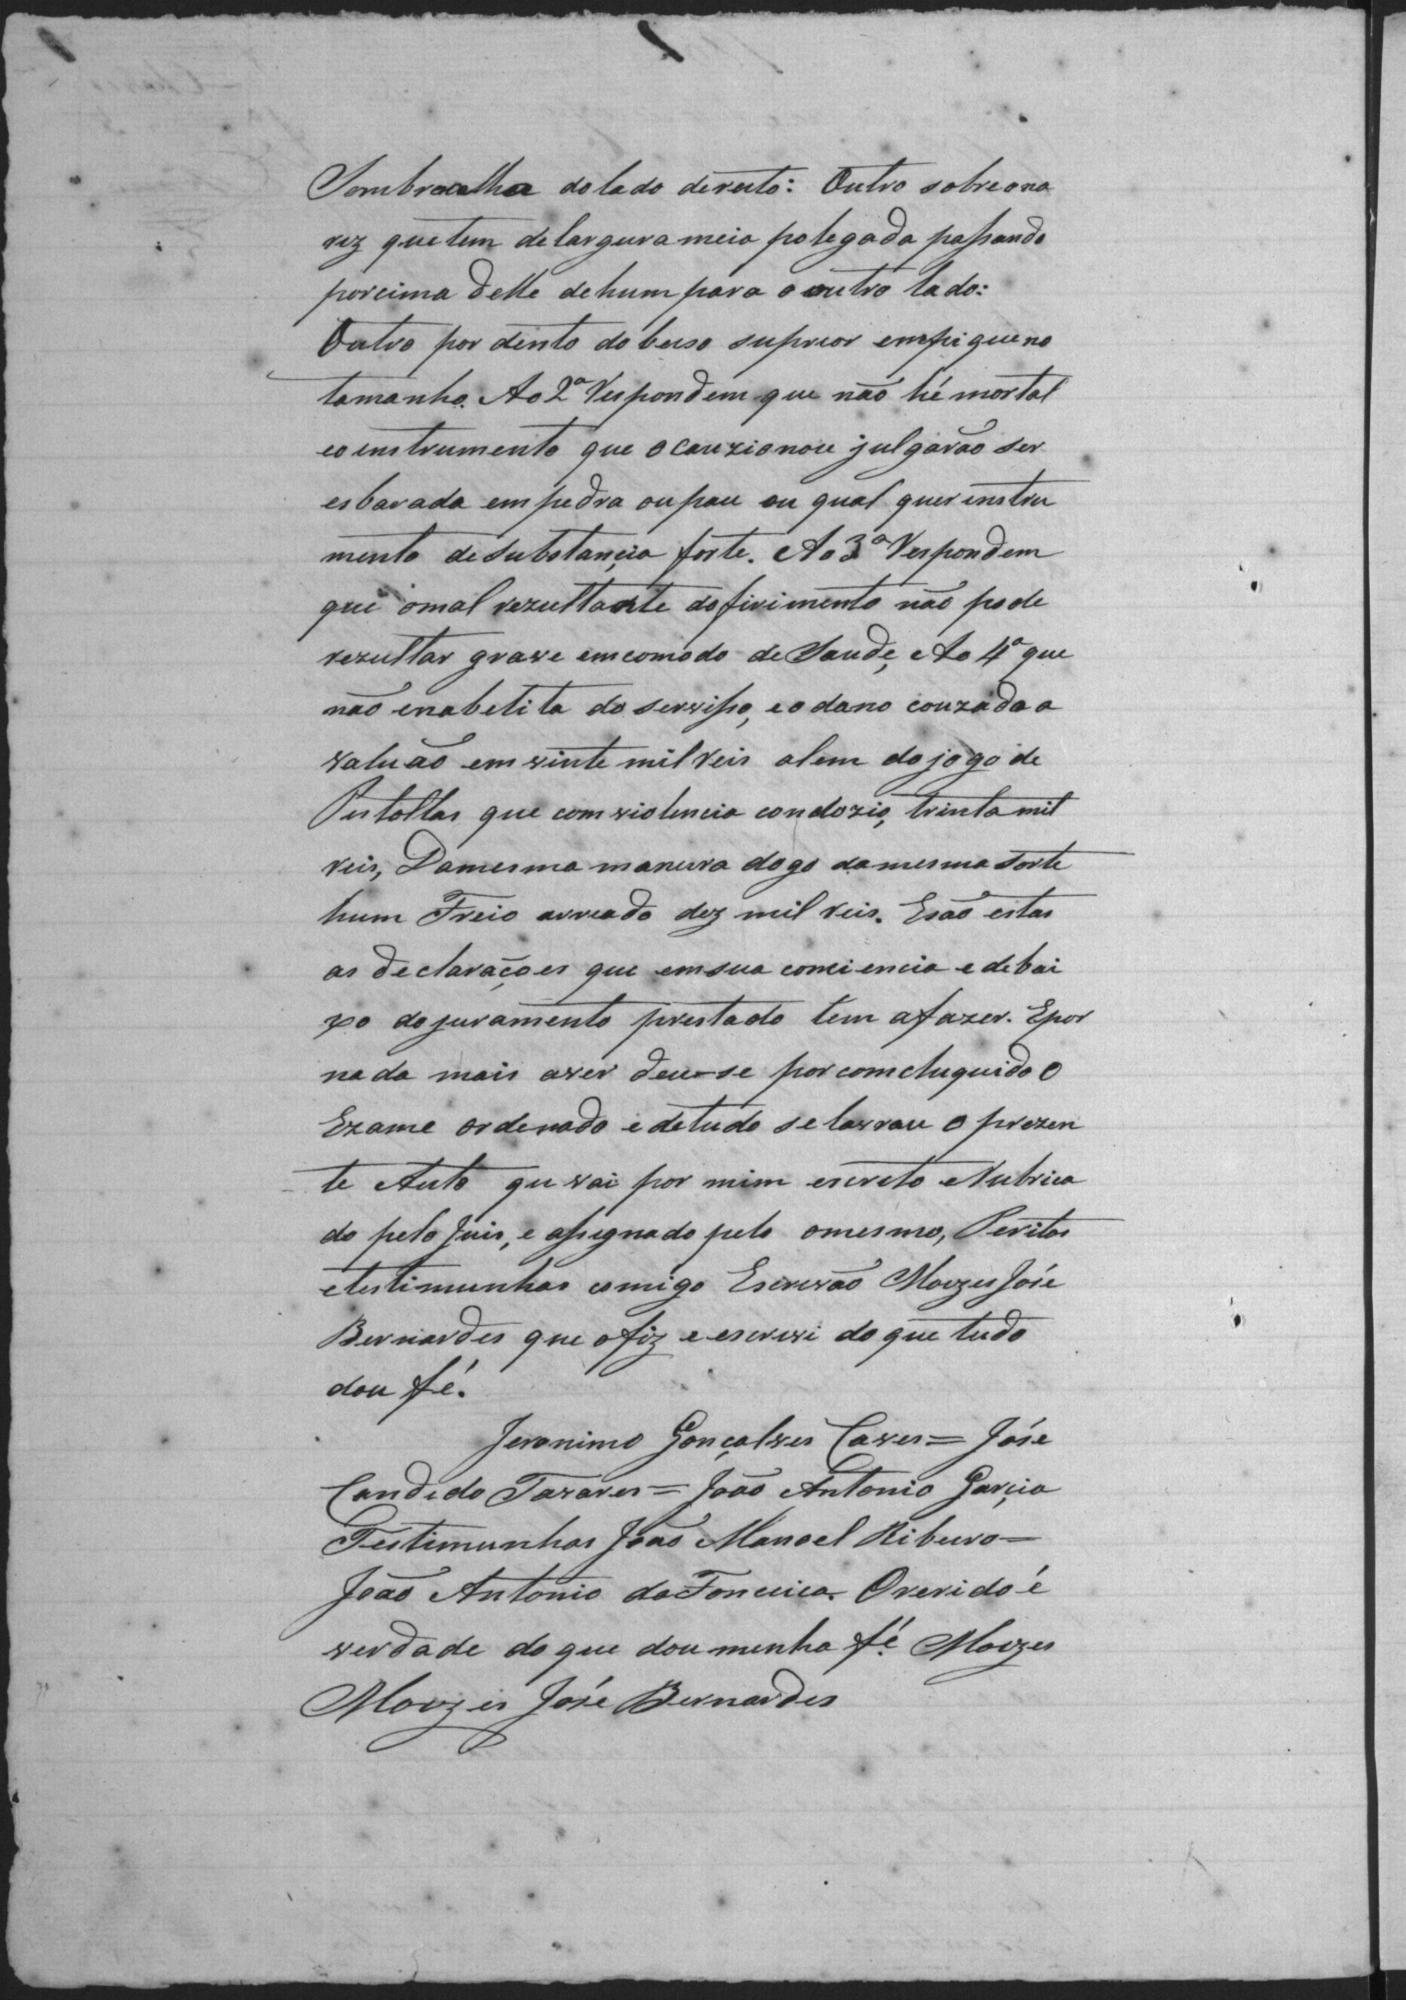 Sombraselha dolado dereito: Outro sobreona
riz que tem delargura meia polegada passando
porcima delle dehum para o outro lado:
Outro por dento do beiso suprior empiqueno
tamanho. Ao 2º Respondem que não hé mortal
eo enstrumento que o cauzionou julgarão ser
esbarada em pedra oupau ou qual quer enstru
mento de substancia forte. Ao 3º Respondem
que omal rezultante do firimento não pode
rezultar grave emcomodo de Saude, e Ao 4º que
não enabelita do servisso, eo dano couzado a
valuão em vinte milreis alem do jogo de
Pistollas que com violencia condozio, trinta mil
reis, Damesma maneira dogo damesma sorte
hum Freio arreado dez mil reis. Esão estas
as declarações que emsua comciencia e debai
xo do juramento prestado tem afazer. Epor
nada mais aver deu-se por comcluquido O
Ezame ordenado e de tudo se lavrau o prezen
te Auto qu vai por mim escreto e Rubrica
do pelo Juis, e assegnado pelo omesmo, Peritos
etestimunhas comigo Escrivão Moizes José
Bernardes que ofiz e escrevi do que tudo
dou fé.
Jeronimo Gonçalves Caves= José
Candedo Tavares= João Antonio Garcia
Testimunhas João Manoel Ribeiro=
João Antonio daFonceica. Oreridoé
verdade do que dou menha fé. Moizes
Moizes José Bernardes